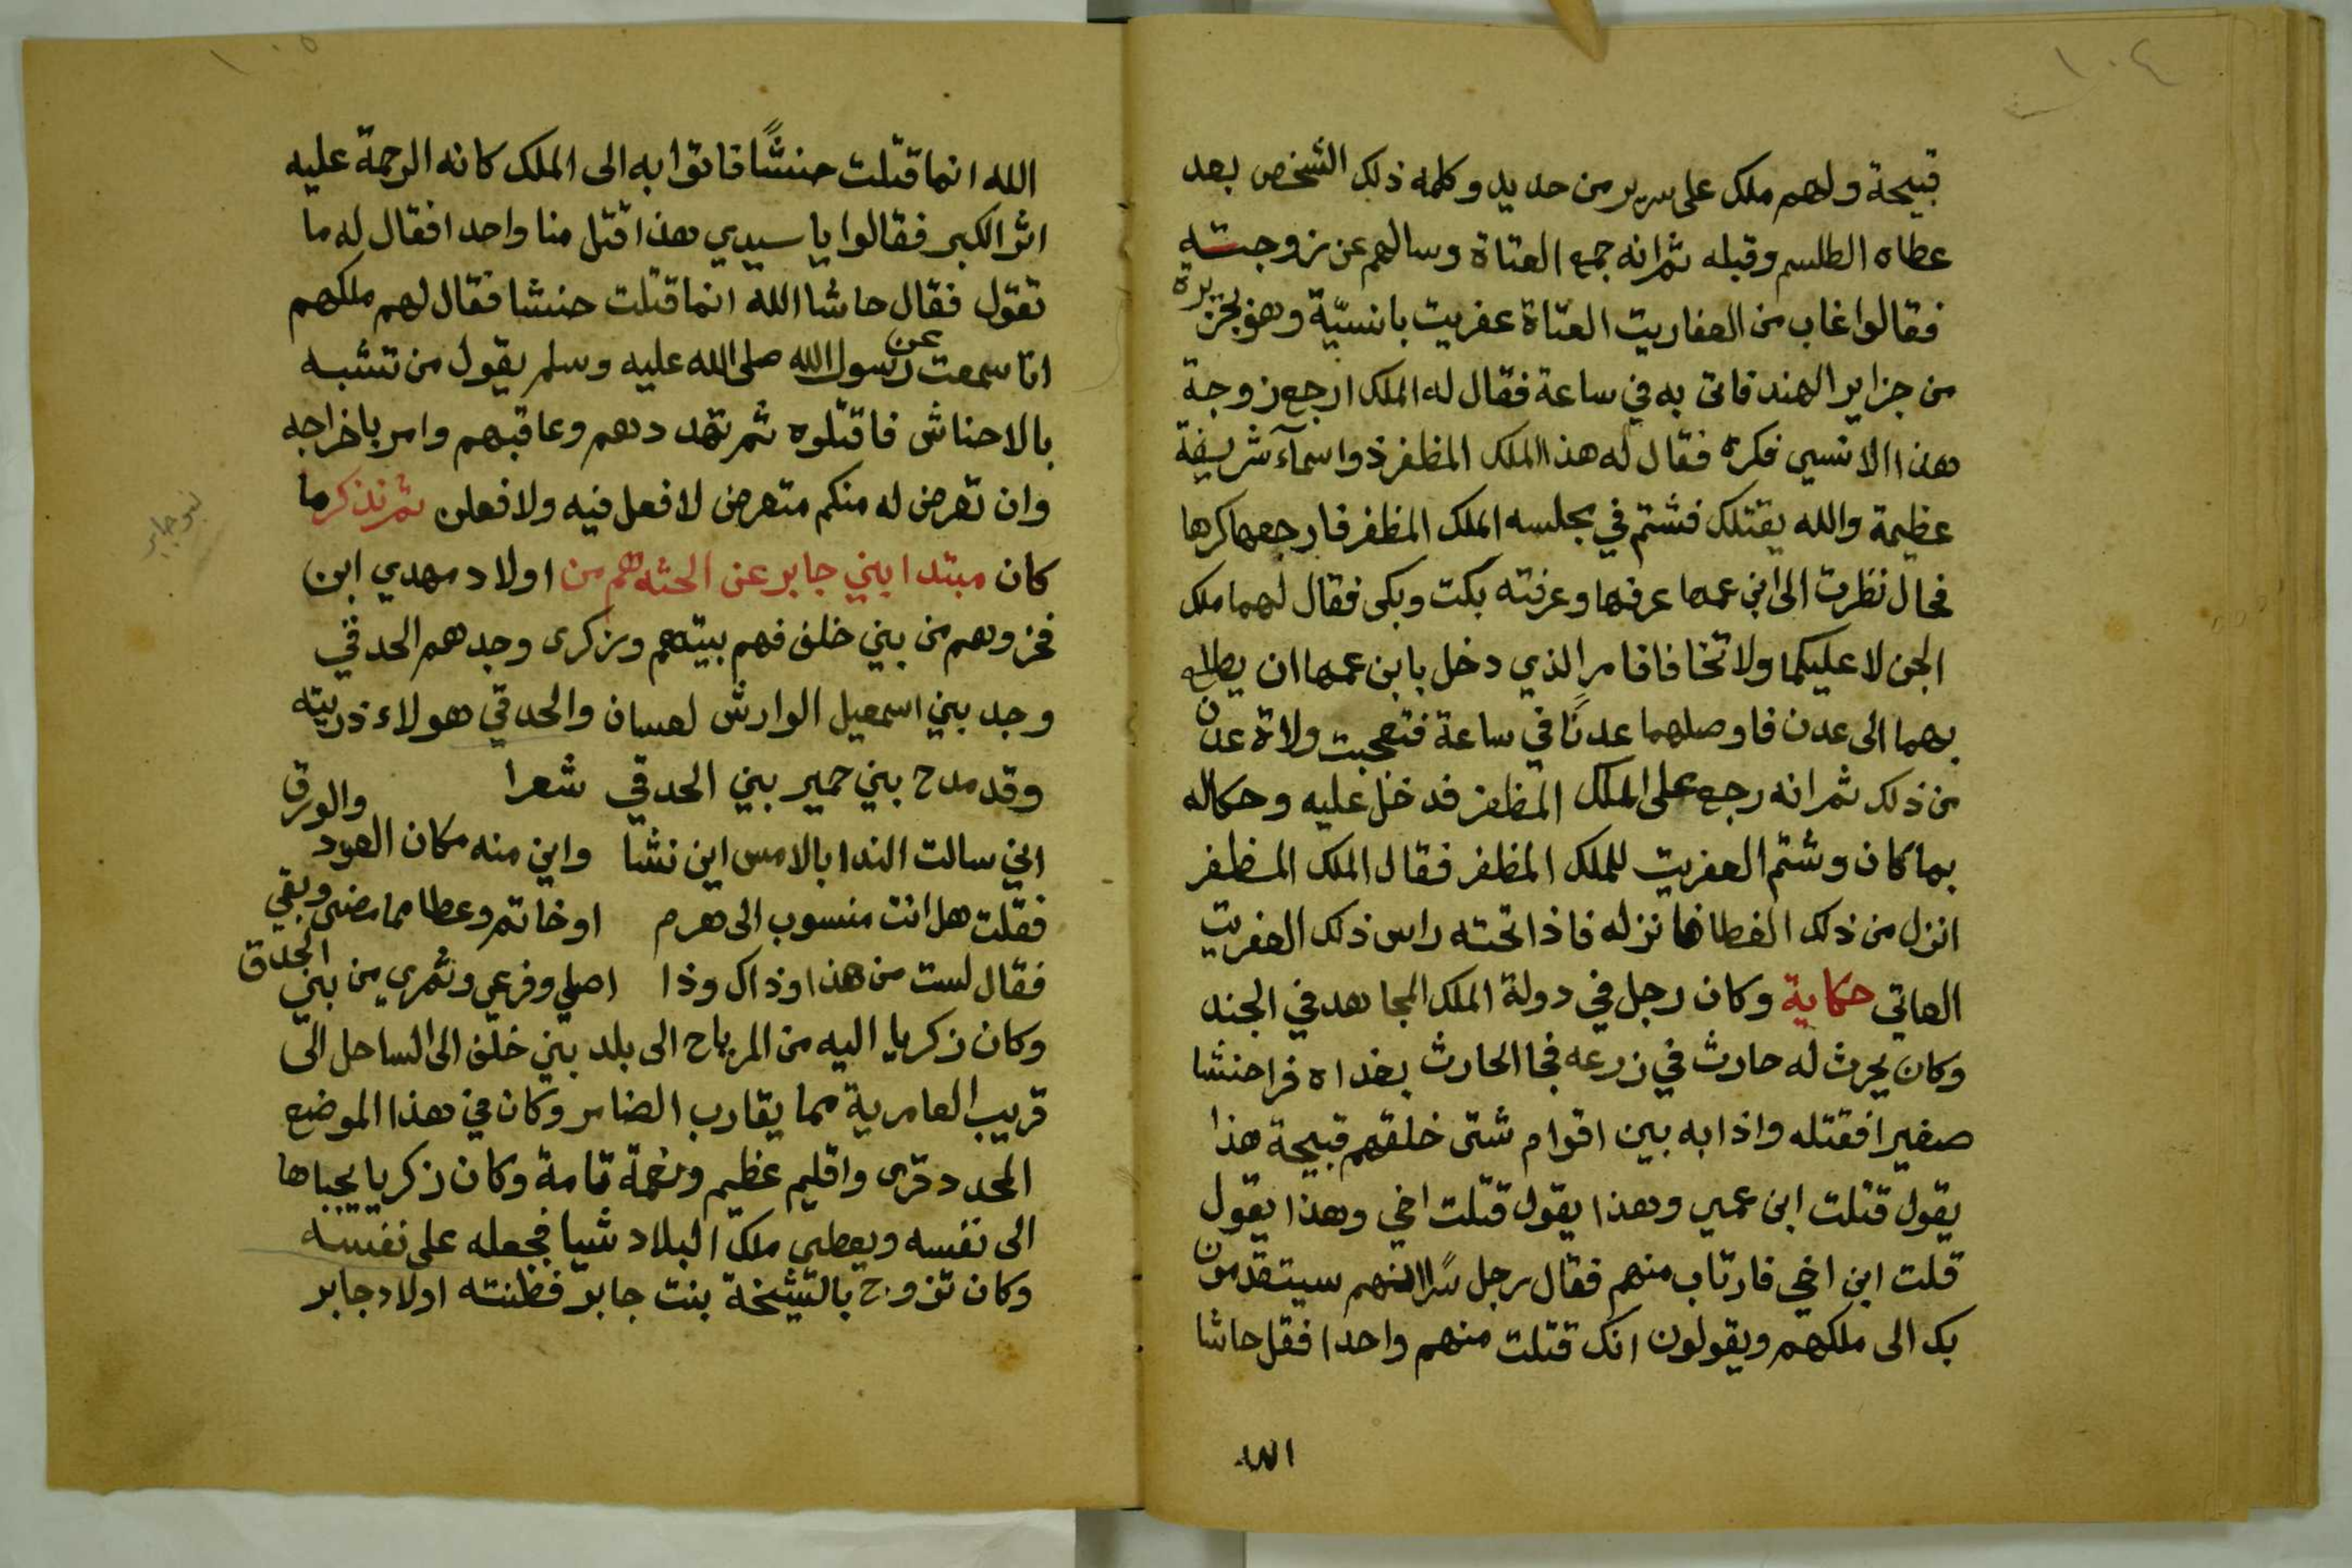 ١٠٤
قبيحة ولهم ملك على سرير من حديد وكلمه ذلك الشخص بعد
عطاه الطلسم وقبله ثم انه جمع العتاة وسالهم عن زوجته
فقالوا غاب من العفاريت العتاة عفريت بانسيّة وهو بجزيرة
من جزاير الهند فاتى به في ساعة فقال له الملك ارجع زوجة
هذا الانسي فكره فقال له هذا الملك المظفر ذو اسمآء شريفة
عظيمة والله يقتلك فشتم في مجلسه الملك المظفر فارجعها كرها
فحال نظرت الى ابن عمها عرفها وعرفته بكت وبكى فقال لهما ملك
الجن لا عليكما ولا تخافا فامر الذي دخل بابن عمها ان يطلع
بهما الى عدن فاوصلهما عدنًا في ساعة فتعجبت ولاة عدن
من ذلك ثم انه رجع على الملك المظفر فدخل عليه وحكاله
بما كان وشتم العفريت للملك المظفر فقال الملك المظفر
انزل من ذلك الغطا فانزله فاذا تحته راس ذلك العفريت
العاتي حكاية وكان رجل في دولة الملك المجاهد في الجند
وكان يحرث له حارث في زرعه فجا الحارث بغداه فرا حنشا
صغيرا فقتله واذا به بين اقوام شتى خلقهم قبيحة هذا
يقول قتلت ابن عمي وهذا يقول قتلت اخي وهذا يقول
قلت ابن اخي فارتاب منهم فقال رجل سرًا انهم سيتقدمون
بك الى ملكهم ويقولون انك قتلت منهم واحدا فقل حاشا
الله
١٠٥
الله انما قتلت حنشًا فاتوا به الى الملك كانه الرحمة عليه
اثر الكبر فقالوا يا سيدي هذا قتل منا واحدا فقال له ما
تقول فقال حاشا الله انما قتلت حنشا فقال لهم ملكهم
انا سمعت عن رسول الله صلى الله عليه وسلم يقول من تشبه
بالاحناش فاقتلوه ثم تهددهم وعاقبهم وامر باخراجه
وان تعرض له منكم متعرض لافعل فيه ولافعلن ثم نذكر ما
كان مبتدا بني جابر عن الحثه هم من اولاد مهدي ابن
بنو جابر
فخر وهم من بني خلف فهم بيتهم وزكرى وجدهم الحدقي
وجد بني اسمعيل الوارش لعسان والحدقي هولاء ذريته
وقد مدح بني حمير بني الحدقي شعرا
اني سالت الندا بالامس اين نشا واين منه مكان العود والورق
فقلت هل انت منسوب الى هرم او خاتم وعطا مما مضى وبقي
فقال لست من هذا وذاك وذا اصلي وفرعي وثمري من بني الحدق
وكان زكريا اليه من المرباح الى بلد بني خلف الى الساحل الى
قريب العامرية مما يقارب الضامر وكان في هذا الموضع
المحدد قرى واقليم عظيم ونعمة تامة وكان زكريا يجباها
الى نفسه ويعطي ملك البلاد شيا فجعله على نفسه
وكان تزوج بالشيخة بنت جابر فظنته اولاد جابر